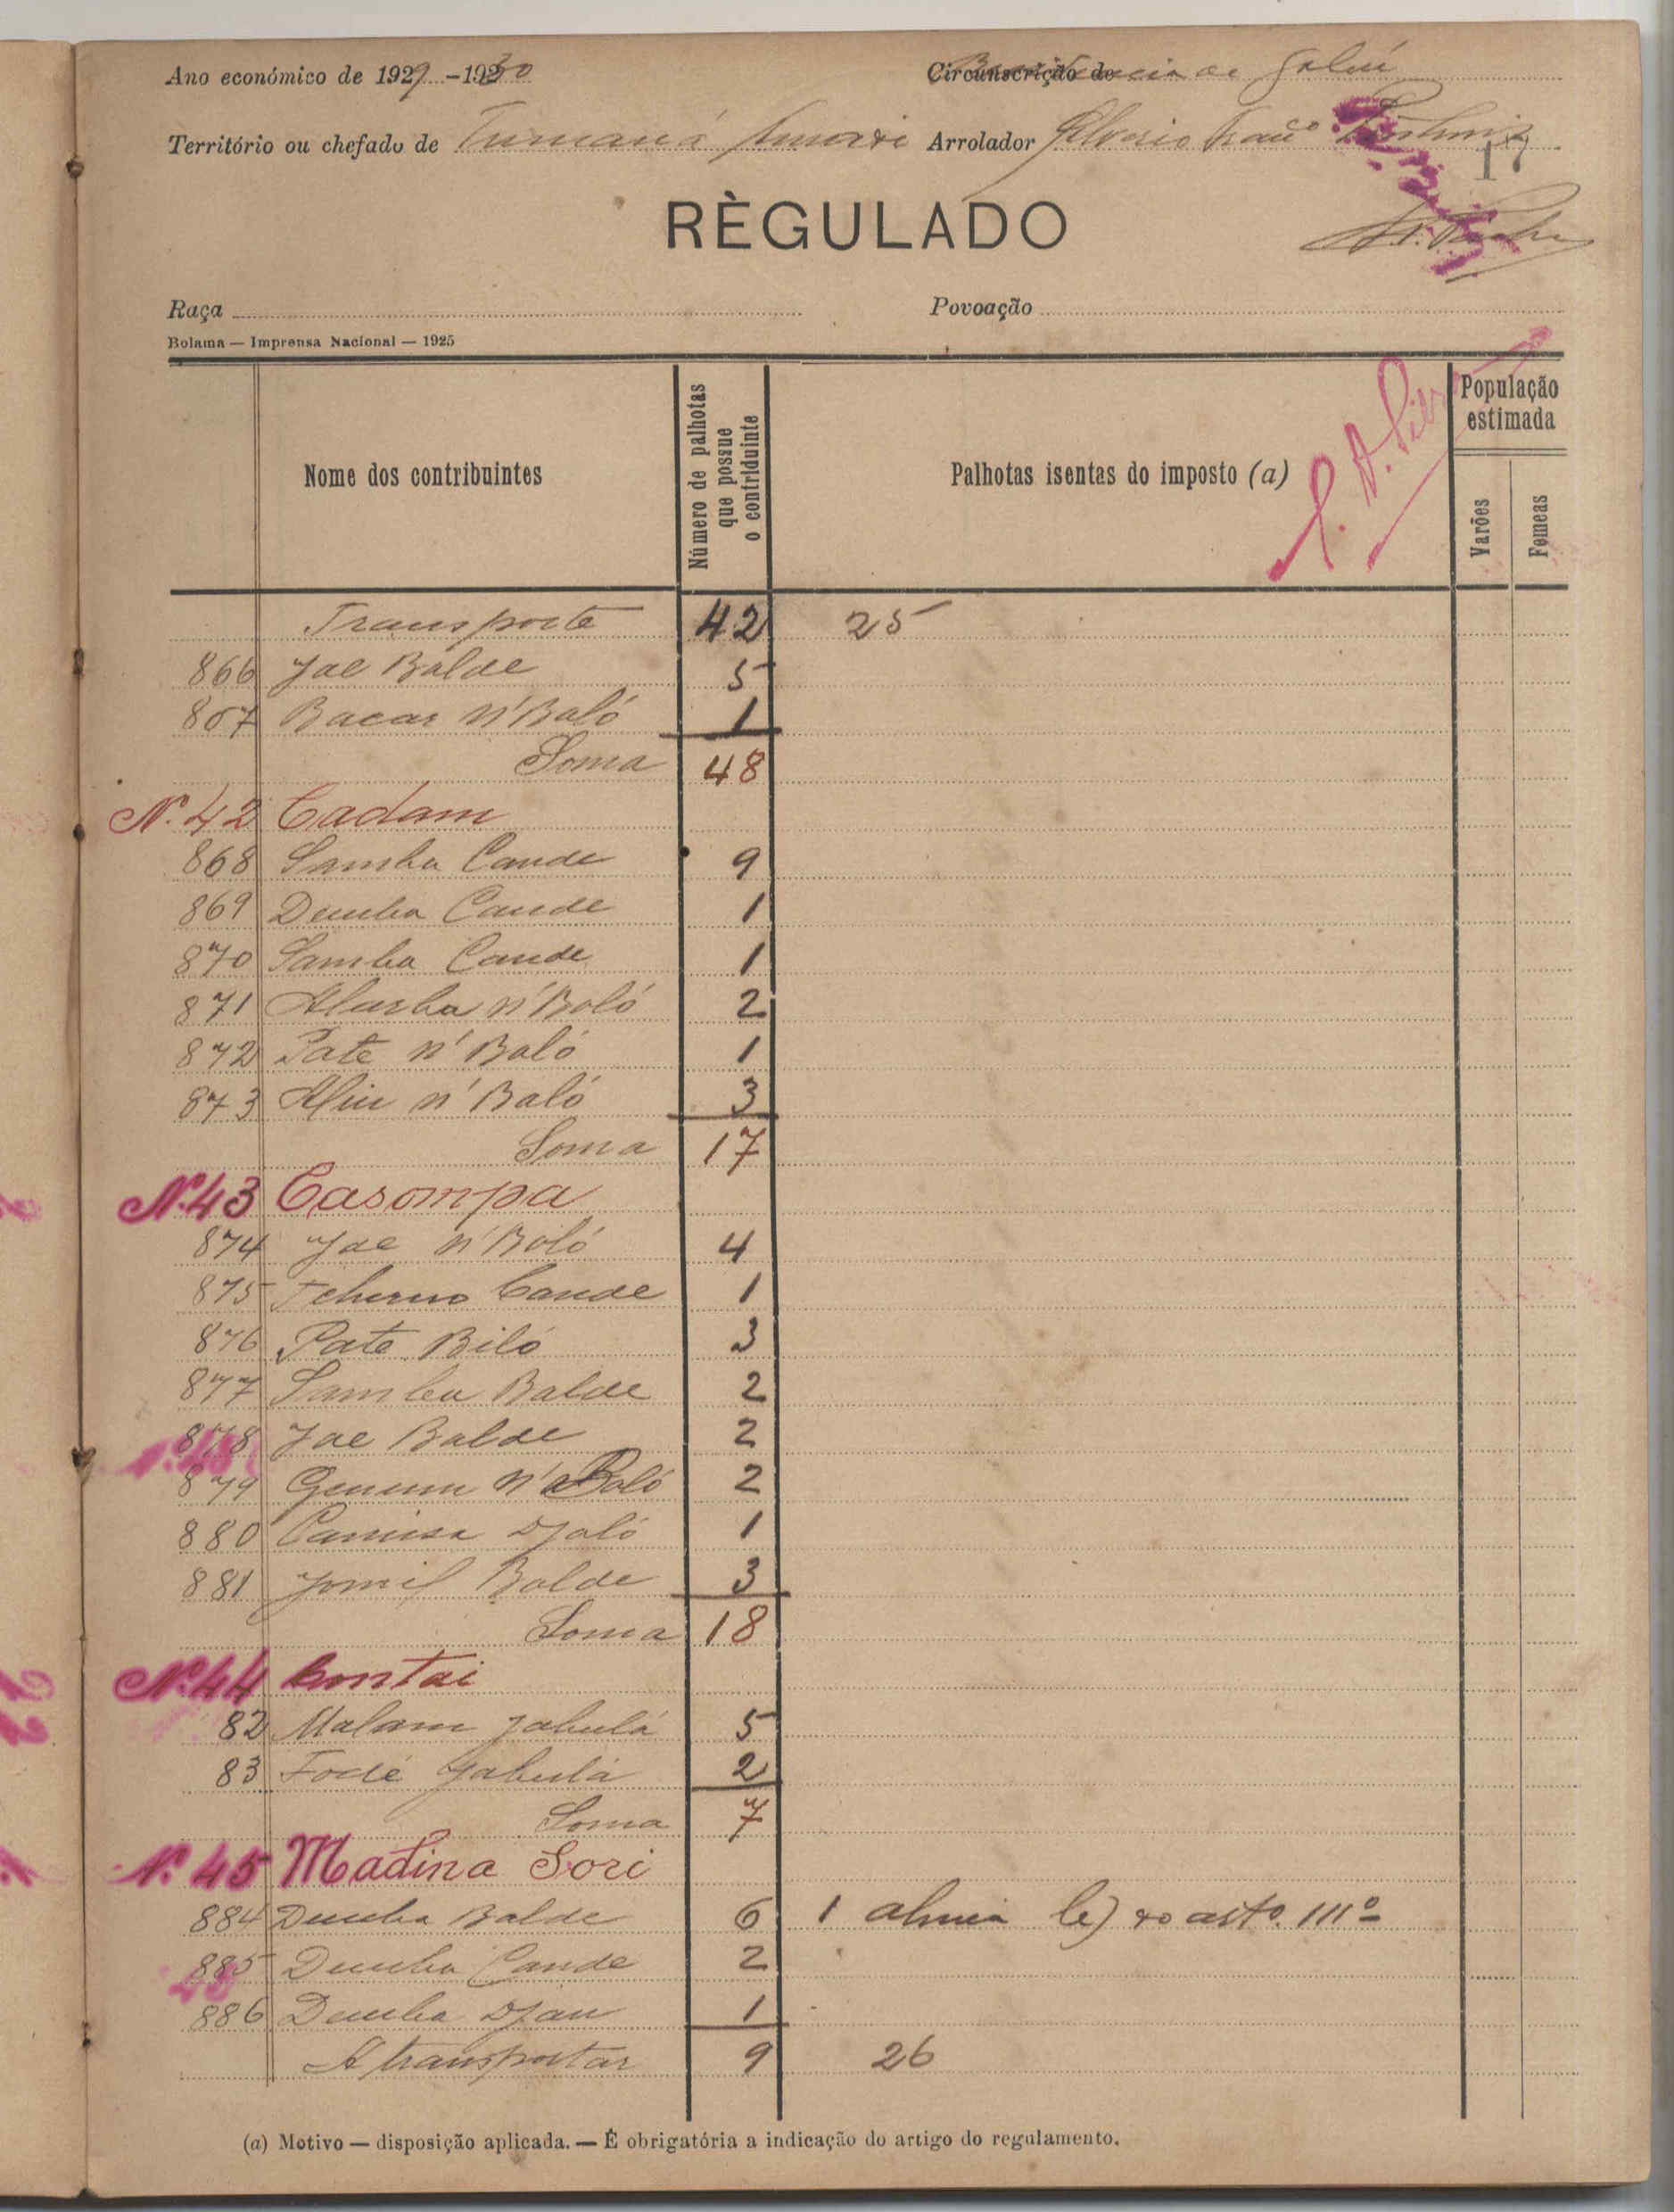 Ano económico de 1929 -1930 Circunscrição de
Território ou chefado de Tumaná Arrolador
17
RÈGULADO
Raça Povoação
Bolama — Imprensa Nacional — 1925
Nome dos contribuintes Número de palhotas que possue o contriduinte Palhotas isentas do imposto (a) População estimada
Varões Femeas
Transporte 42 25
866 Jae Balde 5
867 Bacar n'Baló 1
Soma 48
N. 42 Cadam
868 Samba Cande 9
869 Demba Cande 1
870 Samba Cande 1
871 n'Baló 2
872 Pate n'Baló 1
873 Aliu n'Baló 3
Soma 17
N. 43 Casompa
874 Jae n'Baló 4
875 Tcherno Cande 1
876 Pate Biló 3
877 Samba Balde 2
878 Jae Balde 2
879 n'Baló 2
880 Djaló 1
881 Balde 3
Soma 18
N. 44 Contai
82 Malam Jabulá 5
83 Fodé Jabulá 2
Soma 7
N. 45 Madina Sori
884 Demba Balde 6 1 arto. 111º
885 Demba Cande 2
886 Demba Djau 1
A transportar 9 26
(a) Motivo — disposição aplicada. — É obrigatória a indicação do artigo do regulamento.